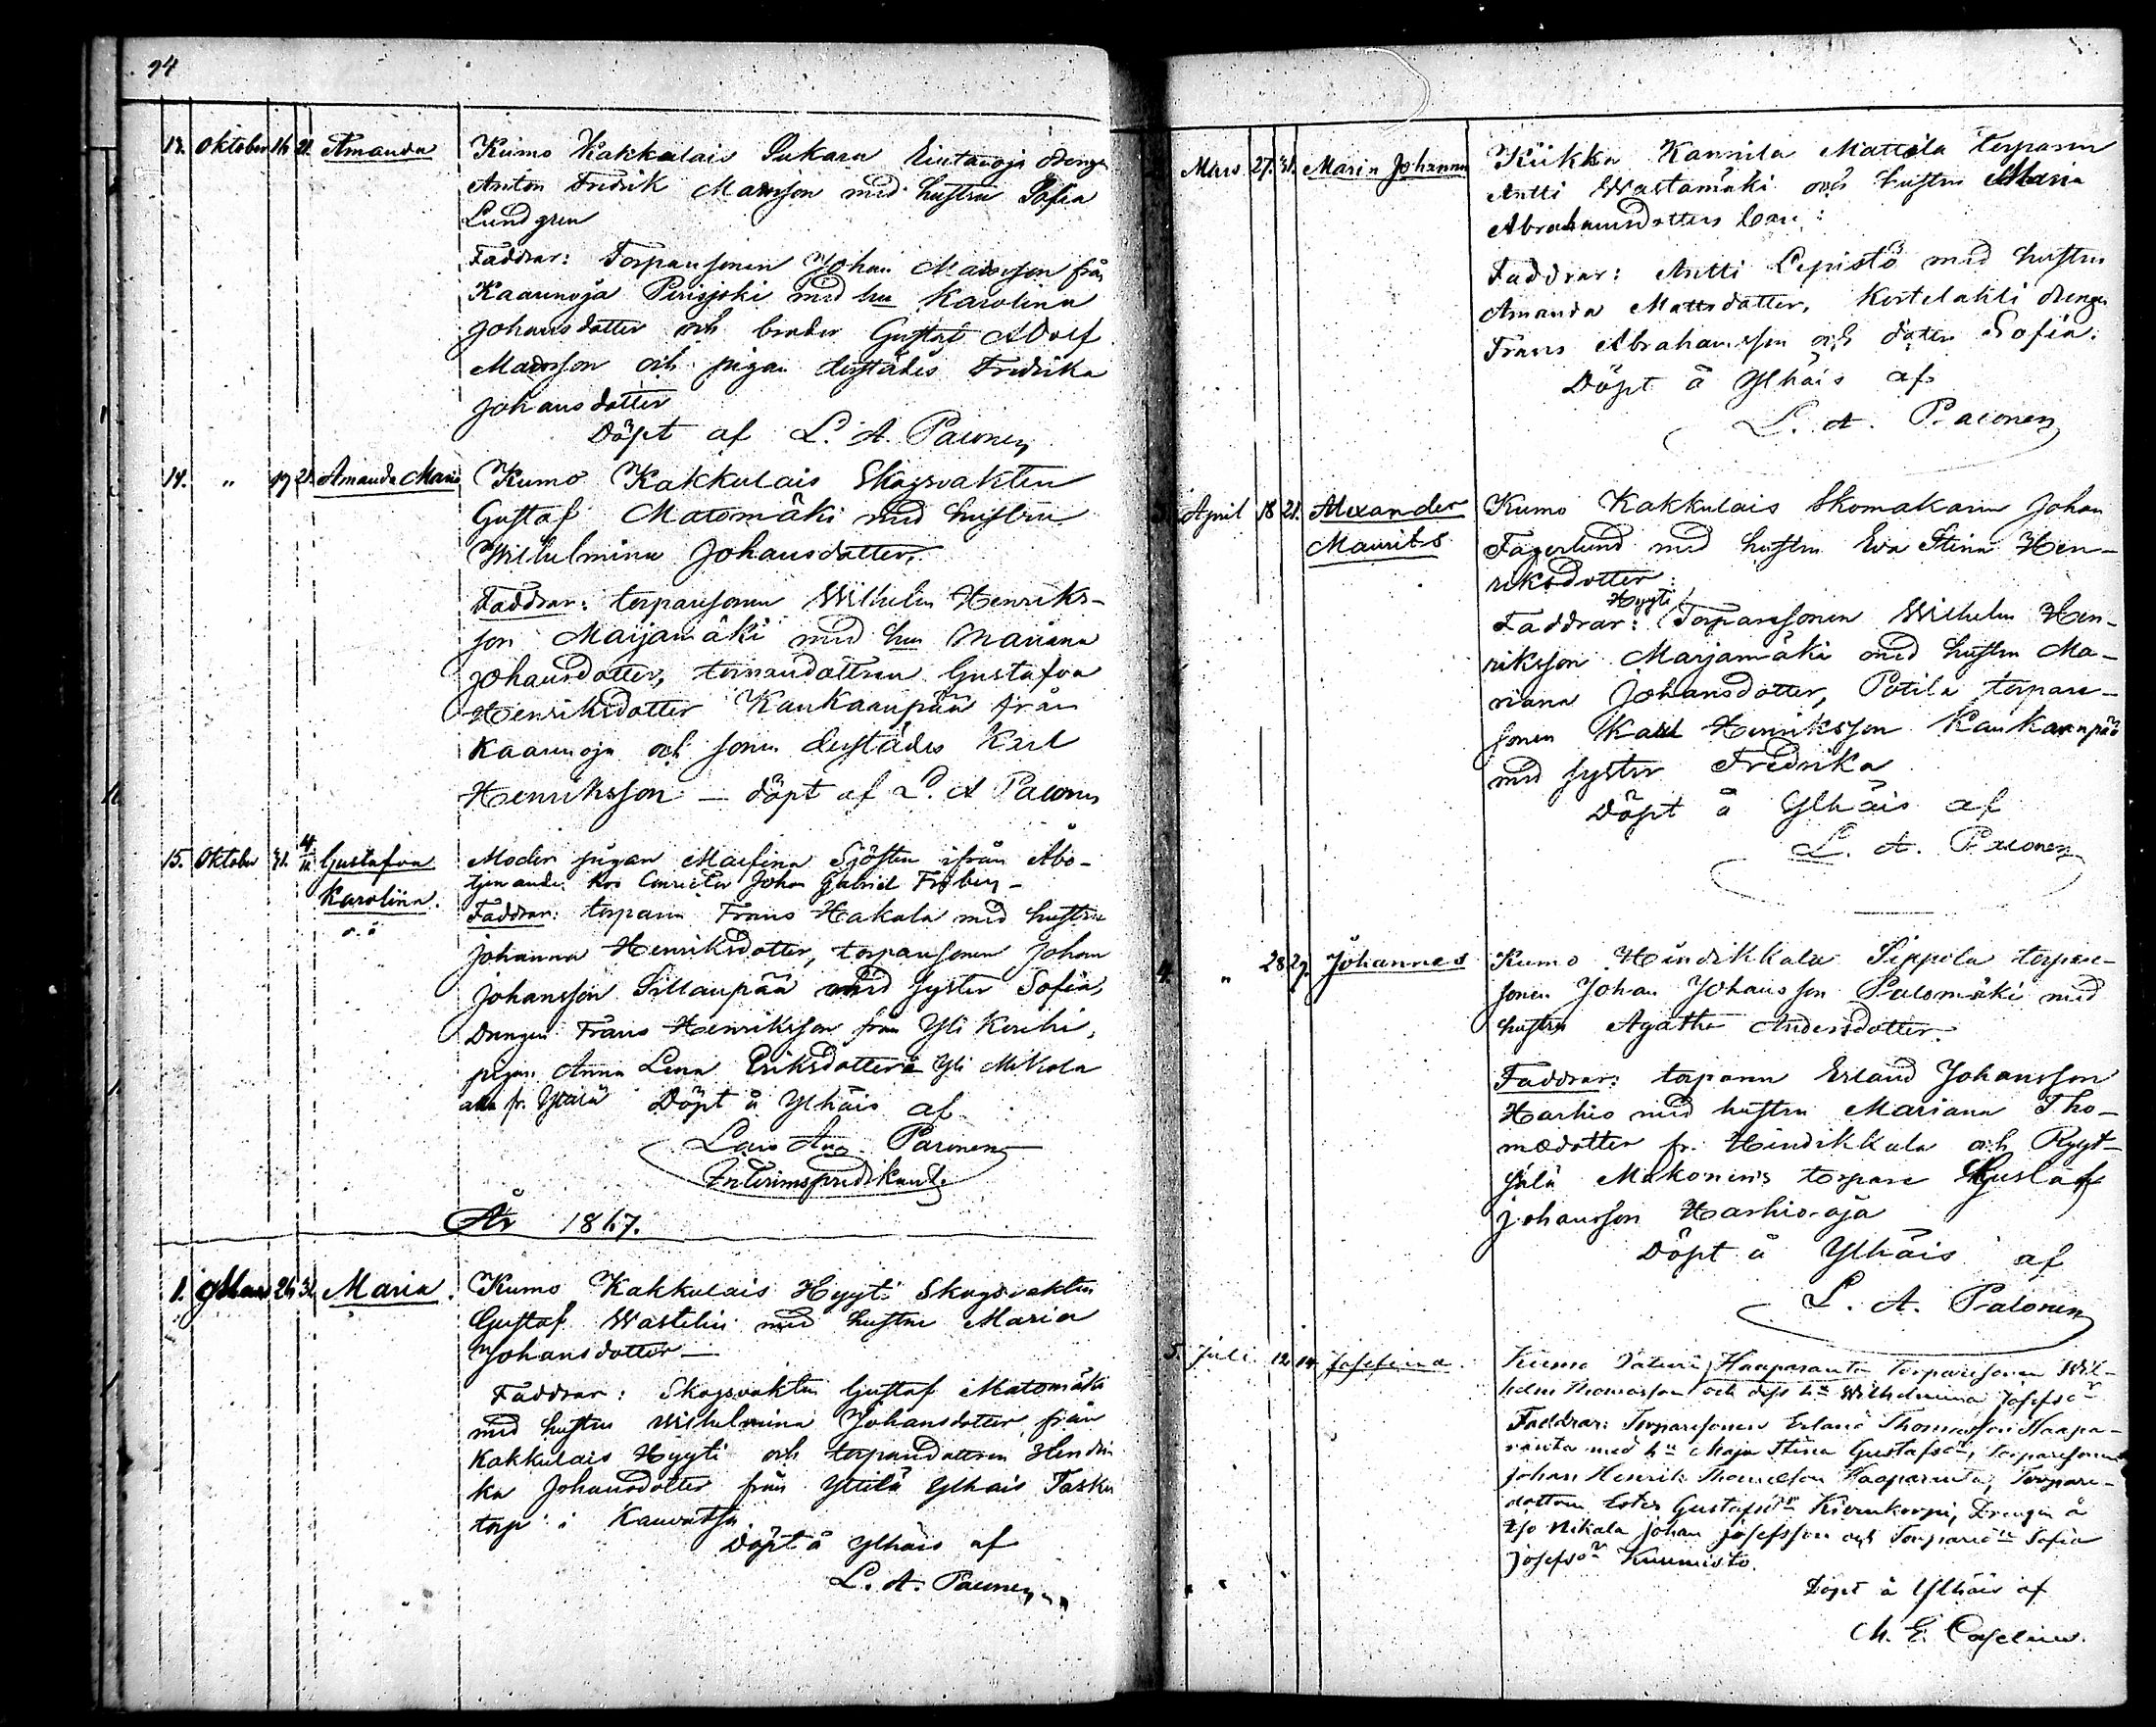 94
13. Oktober 16 21. Amanda Kumo Kakkulais Pukara drengen
Anton Fredrik Madsson med hustru Sofia
Lundgren
Faddrar: Torparesonen Johan från
Kaarinoja med hu Karolina
Johansdotter och broder Gustaf Adolf
och pigan derstädes Fredrika
Johansdotter
Döpt af L. A. Palonen
14. " 19 21. Amanda Maria Kumo Kakkulais Skogsvakten
Gustaf Matomäki med hustru
Wilhelmina Johansdotter.
Faddrar: torparesonen Wilhelm Henriks-
son Marjamäki med hu Mariana
Johansdotter, Gustafva
Henriksdotter Kaukaanpää från
Kaarinoja och sonen derstädes Karl
Henriksson – döpt af L. A Palonen
15. Oktober 31. 4/11 Gustafva Karolina. o.ä Moder pigan ifrån Åbo-
tjenande hos Johan Gabriel
Faddrar: torparen Frans Hakala med hustru
Johanna Henriksdotter, torparesonen Johan
Johansson Sillanpää med syster Sofia,
Drengen Frans Henriksson från Yli
pigan Anna Lena Eriksdotter å Yli Mikola
fr. Yttilä Döpt å Ylhäis af
Lars Aug. Palonen
Interimspredikant.
År 1867.
1. Mars 26 31 Maria. Kumo Kakkulais Hyyti Skogsvakten
Gustaf Wastelin med hustru Maria
Johansdotter —
Faddrar: Skogsvakten Gustaf Matomäki
med hustru Wilhelmina Johansdotter från
Kakkulais Hyyti och torparedottren Hendri
ka Johansdotter från Yttilä Ylhais Tasku
torp i Kauvatsa.
Döpt å Ylhäis af
L. A. Palonen
Mars 27. 31. Maria Johanna Kiikka Kannila Mattila torparen
Antti Wastamäki och hustru Maria
Abrahamsdotters barn:
Faddrar: Antti Lepistö med hustru
Amanda Mattsdotter, drengen
Frans Abrahamsson och dotter Sofia.
Döpt å Ylhäis af
L. A. Palonen
3. April 18 21. Alexander Maurits Kumo Kakkulais Skomakaren Johan
Fagerlund med hustru Eva Stina Hen-
riksdotter:
Hyyti
Faddrar: Torparesonen Wilhelm Hen-
riksson Marjamäki med hustru Ma-
riana Johansdotter, Potila torpare-
sonen Karl Henriksson Kaukaanpää
med syster Fredrika
Döpt å Ylhäis af
L. A. Palonen
4. " 28 29. Johannes Kumo Hindikkala Seppola torpare-
sonen Johan Johansson Palomäki med
hustru Agatha Andersdotter.
Faddrar: torparen Erland Johansson
Harhio med hustru Mariana Tho-
medotter fr. Hindikkala och
torpare Gustaf
Johansson Harhio-oja
Döpt å Ylhäis af
L. A. Palonen
5. Juli 12 14 Josefina. Kumo Haaparanta torparesonen Wil-
helm Thomasson och dess hu Wilhelmina
Faddrar: Torparesonen Erland Thomasson Haapa-
ranta med hu Maja Stina torparesonen
Johan Henrik Haaparanta, Torpare-
dottren Drengen å
Nikala Johan Josefsson och Sofia
Döpt å Ylhäis af
M. E.